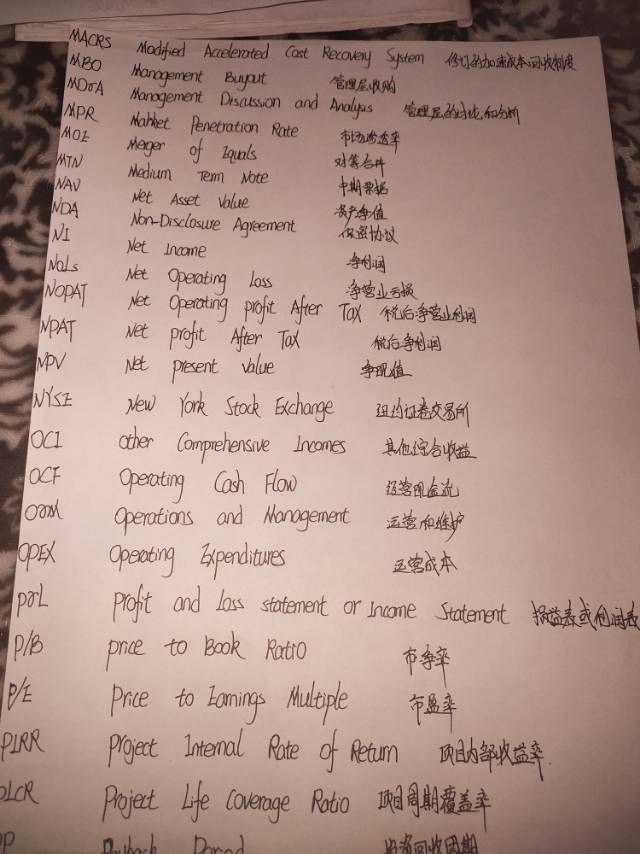 MACRS Modified Accelerated Cost Recovery System 修订的加速成本回收制度
MBO Management Buyout 管理层收购
MD&A Management Disassion and Analysis 管理层的讨论和分析
MPR Market Penetration Rate 市场渗透率
MOE Merger of Equals 对等合并
MTN Medium Term Note 中期票据
NAV Net Asset Value 资产净值
NDA Non-Disclosure Agreement 保密协议
NI Net Income 净利润
NOLs Net Operating Loss 净营业亏损
NOPAT Net Operating profit After Tax 税后净营业利润
NPAT Net profit After Tax 税后净利润
NPV Net present Value 净现值
NYSE New York Stock Exchange 纽约证券交易所
OCI other Comprehensive Incomes 其他综合收益
OCF Operating Cash Flow 运营现金流
O&M Operations and Management 运营和维护
OPEX Operating Expenditures 运营成本
P&L Profit and Loss statement or Income Statement 损益表或利润表
P/B price to Book Ratio 市净率
P/E Price to Earnings Multiple 市盈率
PIRR Project Internal Rate of Return 项目内部收益率
PLCR Project Life Coverage Ratio 项目周期覆盖率
PP Payback 回收周期